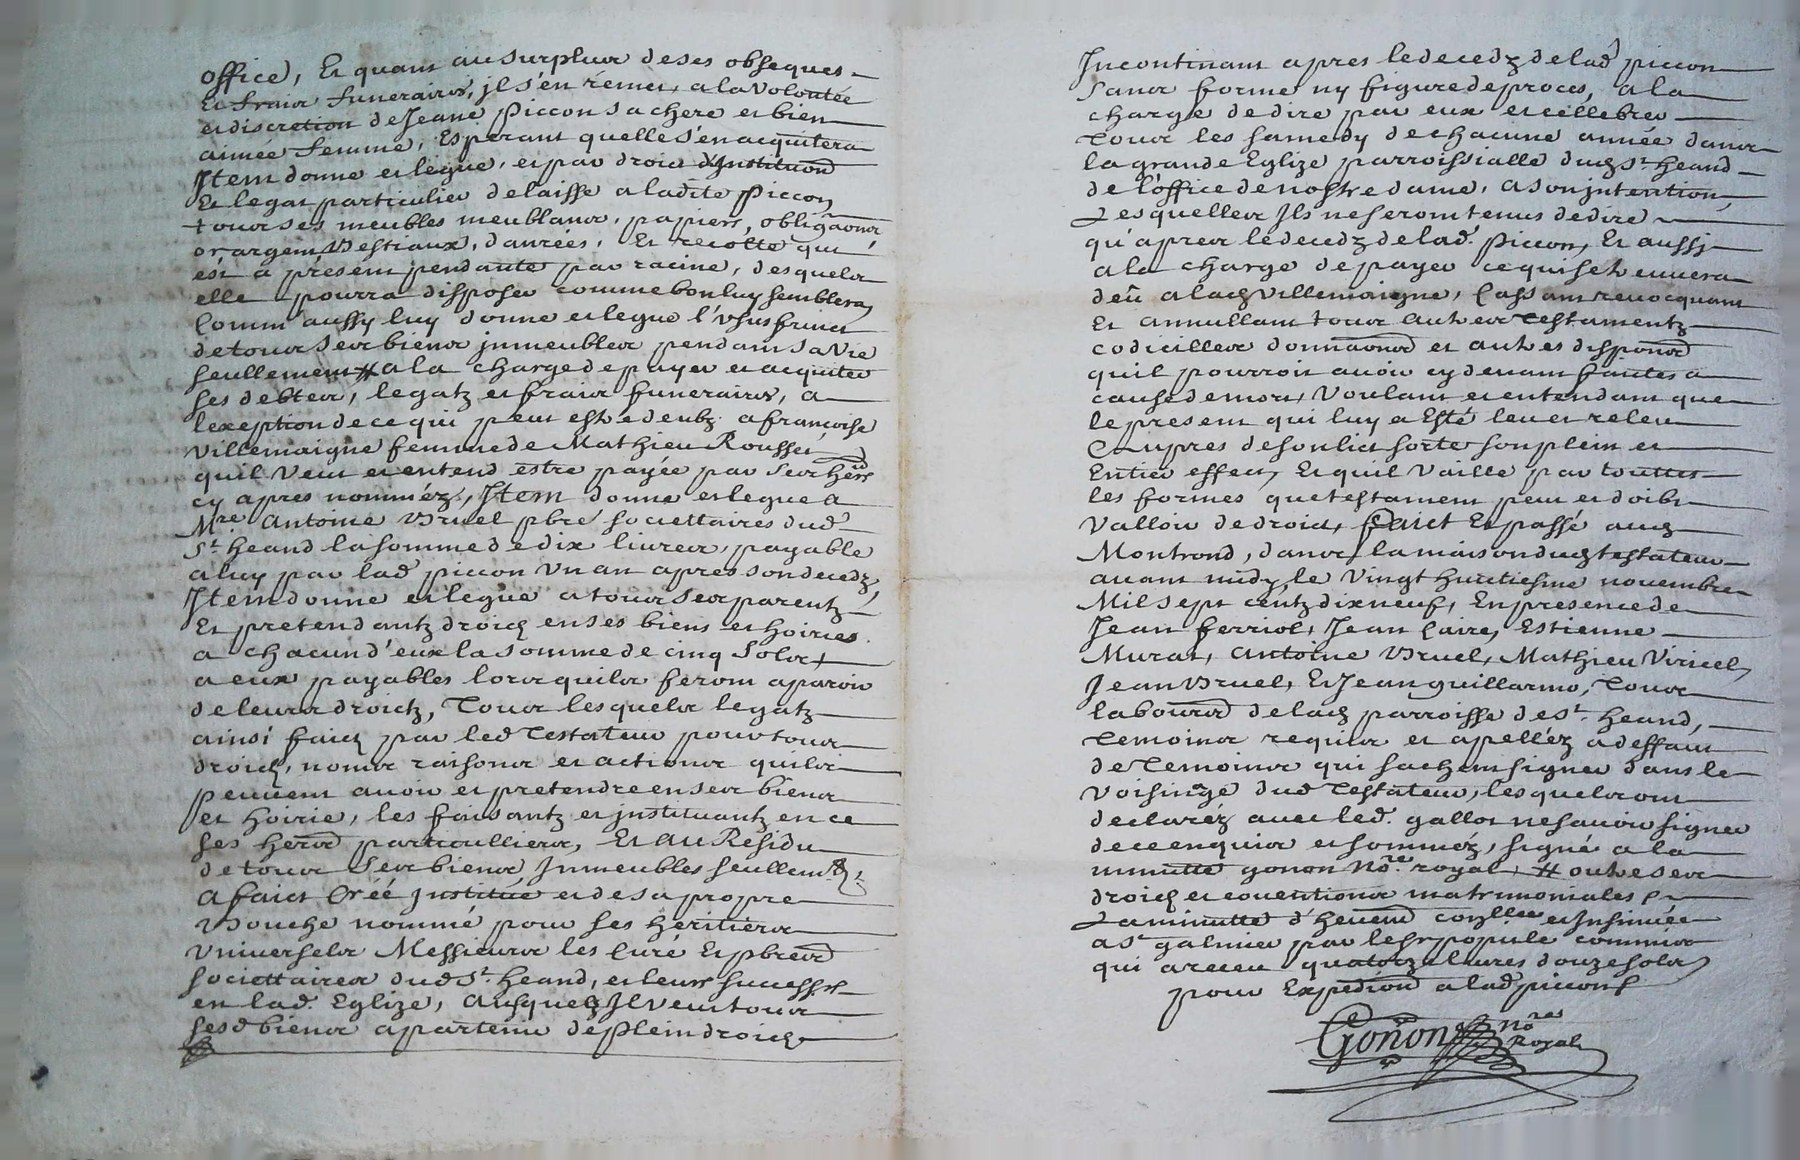 office, Et quant au surplus de ses obseques
Et fraix funeraires, il s'en remet, a la volontée
et discretion de Jeane Piccon sa chere et bien
aimée femme, Esperant quelle s'en acquitera
Item donne et legue, et par droict d'Institu͠on
Et legat particulier delaisse a ladite Piccon
tous ses meubles meublans, papiers, oblig͠aons
or, argent, Bestiaux, danrées, Et recolte qui
est a present pendante par racine, desquels
elle pourra disposer comme bon luy semblera,
Comm'aussy luy donne et legue l'usufruict
de tous ses biens inmeubles pendant sa vie
seullement # a la charge de payer et acquiter
ses debtes, legatz et fraix funeraires, a
lexeption de ce qui peut estre deubz a francoise
Villemaigne femme de Mathieu Rousset
quil veut et entend estre payée par ses hers
cy apres nommez, Item donne et legue a
Mre Antoine Bruel pbre societtaires dud
St heand la somme de dix livres, payable
a luy par lad piccon un an apres son decedz,
Item donne et legue a tous ses parentz
Et pretendantz droictz en ses biens et hoiries
a chacun d'eux la somme de cinq solz
a eux payables lors quils feront aparoir
de leurs droictz, Tous lesquels legatz
ainsi faictz par led Testateur pour tous
droictz, noms raisons et actions quils
peuvent avoir et pretendre en ses biens
et hoirie, les faisantz et instituantz en ce
ses herers particulliers, Et au Residu
de tous ses biens Inmeubles seullemt,
a faict Créé Institué et de sa propre
Bouche nommé pour ses héritiers
Universels Messieurs les Curé Et pbres
societtaires dud St heand, et leurs success
en lad. Eglize, Ausquels Il veut tous
sesd biens apartenir de plein droict
Incontinant apres le decedz de lad piccon
sans forme ny figure de proces, a la
charge de dire par eux et cellebrer
Tous les samedy de chacune année dans
la grande Eglize parroissialle dud St heand
de l'office de nostre dame, a son intention,
Lesquelles Ils ne seront tenus de dire
qu'apres le decedz de lad. piccon, Et aussi
a la charge de payer ce qui se trouvera
deû a lad Villemaigne, Cassant revocquant
Et annullant tous autres Testamentz
codicilles don͠aons et autres dispo͠ns
quil pourroit avoir cy devant faictes a
cause de mort, Voulant et entendant que
le present qui luy a Esté leu et releu
Et apres de sortir sorte son plein et
Entier effect, Et quil vaille par touttes
les formes que testament peut et doibt
Valloir de droict, faict Et passé aud
Montrond, dans la maison dud testateur
avant midy, le vingt huictiesme novembre
Mil sept centz dix neuf, En presence de
Jean ferriol, Jean Caire, Estienne
Murat, Antoine Bruel, Mathieu Viricel,
Jean Bruel, Et Jean guillarmo, Tous
labours de lad parroisse de St. heand,
Temoins requis et apellez a deffaut
de Temoins qui sachent signer dans le
voisinage dud Testateur, lesquels ont
declaréz avec led. gallot ne savoir signer
de ce enquis et sommez, signé a la
minutte gonon No.re royal, # outre ses
droictz et conventions matrimoniales
La minutte d'heuemt conllée et Insinuée
a St galmier par le sr popule commis
qui a receu quatorze livres douze sols
pour Expedi͠on a lad piccon
Gonon nore
Royal